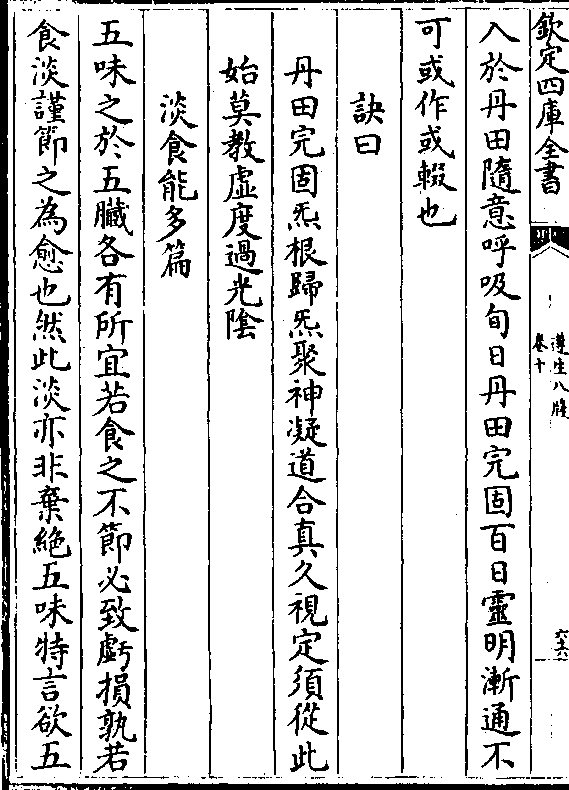 欽定四庫全書
遵生八牋
卷十
六十六
入於丹田隨意呼吸旬日丹田完固百日靈明漸通不
可或作或輟也
訣曰
丹田完固炁根歸炁聚神凝道合真久視定須從此
始莫教虛度過光陰
淡食能多篇
五味之於五臟各有所宜若食之不節必致虧損孰若
食淡謹節之為愈也然此淡亦非棄絶五味特言欲五